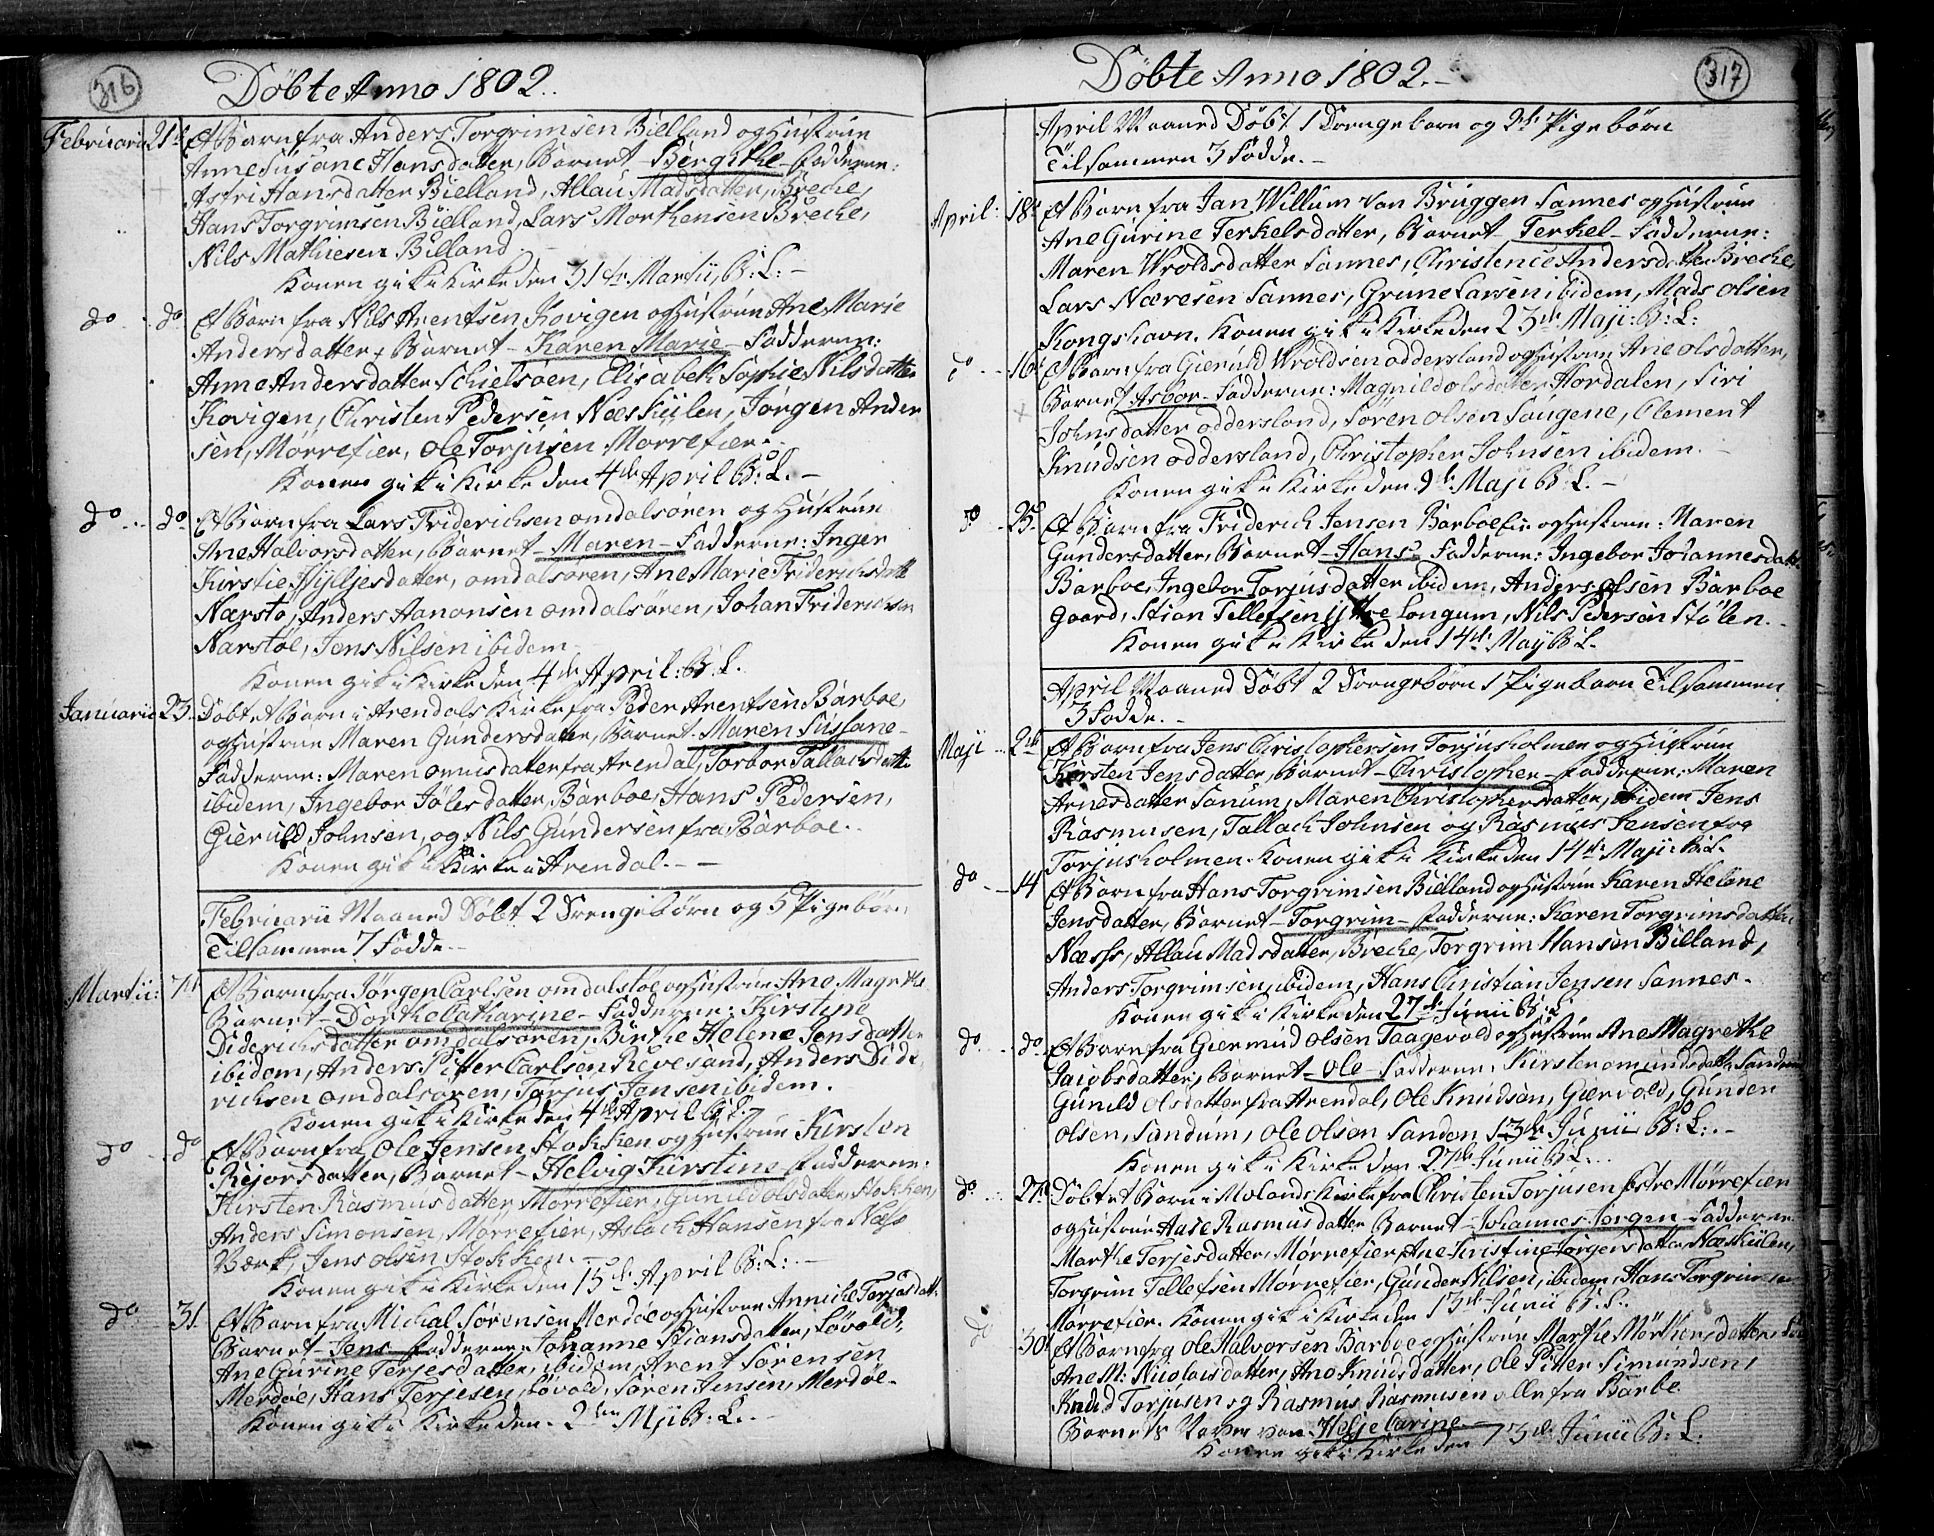 316
Döbte Anno 1802.
Februarii 21de Et Barn fra Anders Torgrimsen Bielland og Hustrue
Anne Susane Hansdatter, Barnet - Bergithe - Fadderne:
Astri Hansdatter Bielland, Allau Madsdatter, Breche,
Hans Torgrimsen Bielland, Lars Morthensen Breche,
Nils Mathiesen Billand.
Konen gik i Kirke den 31te Martii, B: L: -
do do Et Barn fra Nils Arentsen Kovigen og Hustrue Ane Marie
Andersdatter, Barnet - Karen Marie - Fadderne:
Anne Andersdatter Schielsöen, Elisabeth Sophie Nilsdatter
Kovigen, Christen Pedersen Næskiilen, Jörgen Ander
sen, Mörrefier, Ole Torjusen Mörrefier.
Konen gik i Kirke den 4de April B: L. -
do do Et Barn fra Lars Friderichsen omdalsören og Hustrue
Ane Halvorsdatter, Barnet - Maren - Fadderne: Inger
Kirstie datter, omdalsören, Ane Marie Friderichsdatt
Narstö, Anders Aanonsen omdalsören, Johan Friderichsen
Narstöe, Jens Nilsen ibidem
Konen gik i Kirke den 4de April: B: L.
Januarii 23. Döbt et Barn i Arendals Kirke fra Peder Arentsen Barboe,
og Hustrue Maren Gundersdatter, Barnet - Maren Sussane -
Fadderne: Maren omus datter fra Arendal, Torbor Tallachsdatter
ibidem, Ingebor Jölesdatter, Barboe, Hans Pedersen,
Gieruld Johnsen, og Nils Gundersen fra Barboe.
Konen gik i Kirke i Arendal. -
Februarii Maaned Döbt 2 Drengebörn og 5 Pigebörn,
Tilsammen 7 Födde. -
Martii: 7de Et Barn fra Jörgen Carlsen omdalstöe og Hustrue Ane Magrethe
Barnet - Dorthe Catharine - Fadderne: Kirstine
Diderichsdatter omdalsören, Birthe Helene Jensdatter
ibidem, Anders Pitter Carlsen Revesand, Anders Dide
richsen omdalsören, Torjus Jensen ibidem.
Konen gik i Kirke den 4de April B: L:
do do Et Barn fra Ole Jensen Stokken og Hustrue Kirsten
Rejorsdatter, Barnet - Helvig Kirstine, Fadderne:
Kirsten Rasmusdatter, Mörrefier, Gunild olsdatter, Stokken,
Anders Simonsen, Mörrefier, Aslach Hansen fra Næss
Værk, Jens olsen Stokken. -
Konen gik i Kirke den 15de April B: L: -
do 31. Et Barn fra Michal Sörensen Merdöe og Hustrue Anniche Terjesdatt:
Barnet - Jens - Fadderne: Johanne Stiansdatter, Lövold,
Ane Gurine Terjesdatter, ibidem, Arent Sörensen
Merdöe, Hans Terjesen, Lövold, Sören Jensen, Merdöe -
Konen gik i Kirke den. 2den Maji B: L. -
Döbte Anno 1802. -
317
April Maaned Döbt 1 Drengebarn og 2de Pigebörn
Tilsammen 3 Födde. -
April: 18de Et Barn fra Jan Willum van Brüggen Sannes og Hustrue
Ane Gurine Terkelsdatter, Barnet - Terkel - Fadderne:
Maren Wroldsdatter Sannes, Christence Andersdatter Breche,
Lars Næresen Sannes, Grune Larsen ibidem, Mads Olsen
Kongshavn. Konen gik i Kirke den 23de Maji: B: L:
do 16de Et Barn fra Gieruld Wroldsen oddersland og Hustrue Ane olsdatter,
Barnet Asbor - Fadderne: Magnild olsdatter Hordalen, Siri
Johnsdatter oddersland, Sören olsen Saugene, Clement
Knudsen oddersland, Christopher Johnsen ibidem. -
Konen gik i Kirke den 9de Maji B: L. -
do 25de Et Barn fra Friderich Jensen Barboe og Hustrue: Maren
Gundersdatter, Barnet - Hans - Fadderne: Ingebor Johannesdatt
Barboe, Ingebor Torjusdatter ibidem, Anders olsen Barboe
gaard, Stian Tellefsen Longum, Nils Pedersen Stölen.
Konen gik i Kirke den 14de Maji B: L.
April Maaned Döbt 2 Drengebörn 1 Pigebarn Tilsammen
3 Födde. -
Maji 2de Et Barn fra Jens Christophersen Torjusholmen og Hustrue
Kirsten Jensdatter, Barnet - Christopher - Fadderne: Maren
Arnesdatter Sanum, Maren Christophersdatter, ibidem Jens
Rasmusen, Tallach Johnsen og Rasmus Jensen fra
Torjusholmen. Konen gik i Kirke den 14de Maji B: L.
do 14 Et Barn fra Hans Torgrimsen Bielland og Hustrue Karen Helene
Jensdatter, Barnet - Torgrim - Fadderne: Karen Torgrimsdatter
Næsss, Allau Madsdatter, Breche, Torgrim Hansen Billand,
Anders Torgrimsen, ibidem, Hans Christian Jensen Sannes -
Konen gik i Kirke den 27de Junii B: L
do do Et Barn fra Giermud olsen Taagevold og Hustrue Ane Magrethe
Jacobsdatter, Barnet - Ole - Fadderne: Kirsten omundsdatter Sandum
Gunild olsdatter fra Arendal, Ole Knudsen, Giervold, Gunder
olsen, Sandum, ole olsen Sanden 13de Junii B: L: -
Konen gik i Kirke den 27de Junii B: L. -
do 27de Döbt et Barn i Molands Kirke fra Christen Torjusen östre Mörrefier
og Hustrue Aase Rasmusdatter Barnet - Johannes Jörgen - Fadderne
Marthe Terjesdatter, Mörrefier, Ane Kirstine Jörgensdatter, Næskiilen,
Torgrim Tellefsen Mörrefier, Gunder Nilsen, ibidem, Hans Torgrimsen
Mörrefier. Konen gik i Kirke den 13de Junii B. L.
do 30de Et Barn fra Ole Halvorsen Barboe og Hustrue Marthe Morthensdatter,
Ane M: Nicolaisdatter, Ane Knudsdatter, Ole Pitter Simundsen,
Knud Torjusen og Rasmus Rasmusen alle fra Barbe
Barnets Navn var. Helje Carine. -
Konen gik i Kirke den 13de Junii B: L.